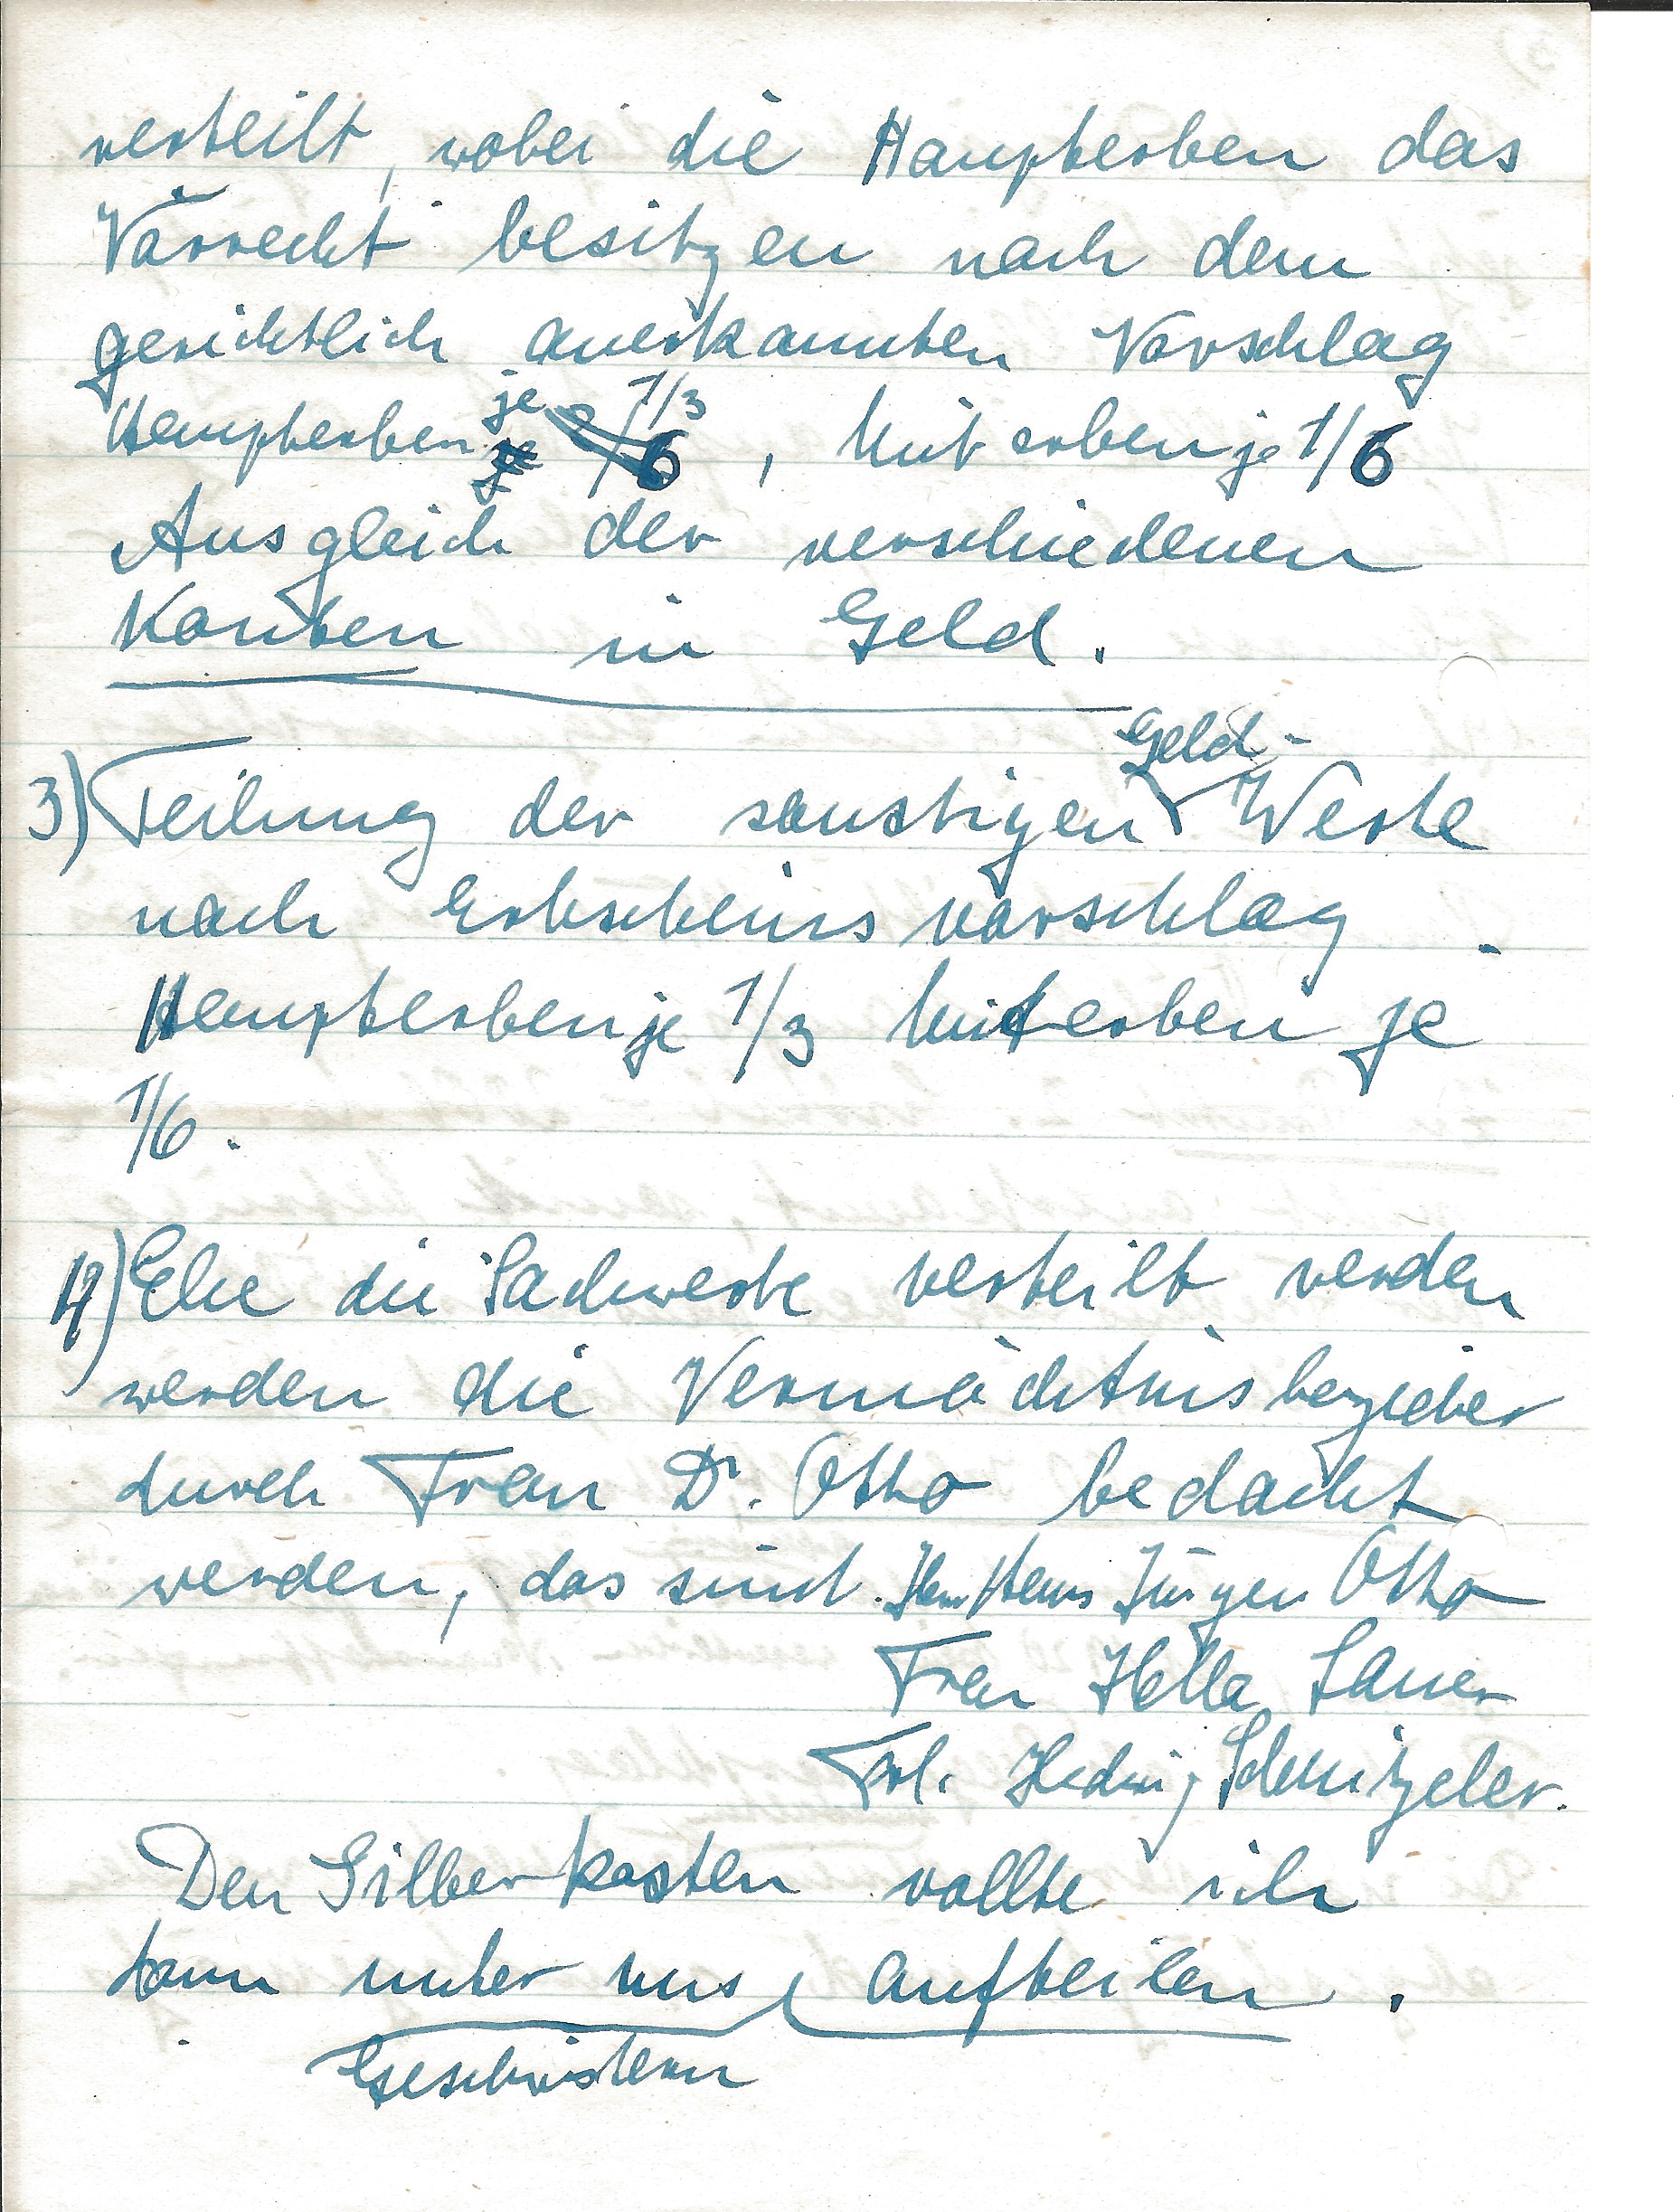 verteilt, wobei die Haupterben das
Vorrecht besitzen nach dem
gerichtlich anerkannten Vorschlag
Haupterben je 1/3, Miterben je 1/6
Ausgleich der verschiedenen
Konten in Geld.
3) Teilung der sonstigen Geld-Werte
nach Erbscheinsvorschlag.
Haupterben je 1/3 Miterben je
1/6.
4) Ehe die Sachwerte verteilt werden
werden die Vermächtnisbezieher
durch Frau Dr. Otto bedacht
werden, das sind Herr Hans Jürgen Otto
Frau Hella Sauer
Frl. Hedwig Schnitzeler.
Den Silberkasten wollte ich
dann unter uns Geschwistern aufteilen.